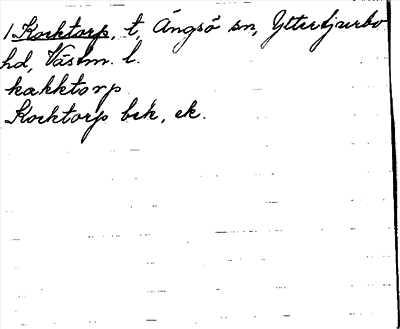 1 Kocktorp, t, Ängsö sn, Yttertjurbo
hd, Västm. l.
kakktorp
Kocktorp bek, ek.